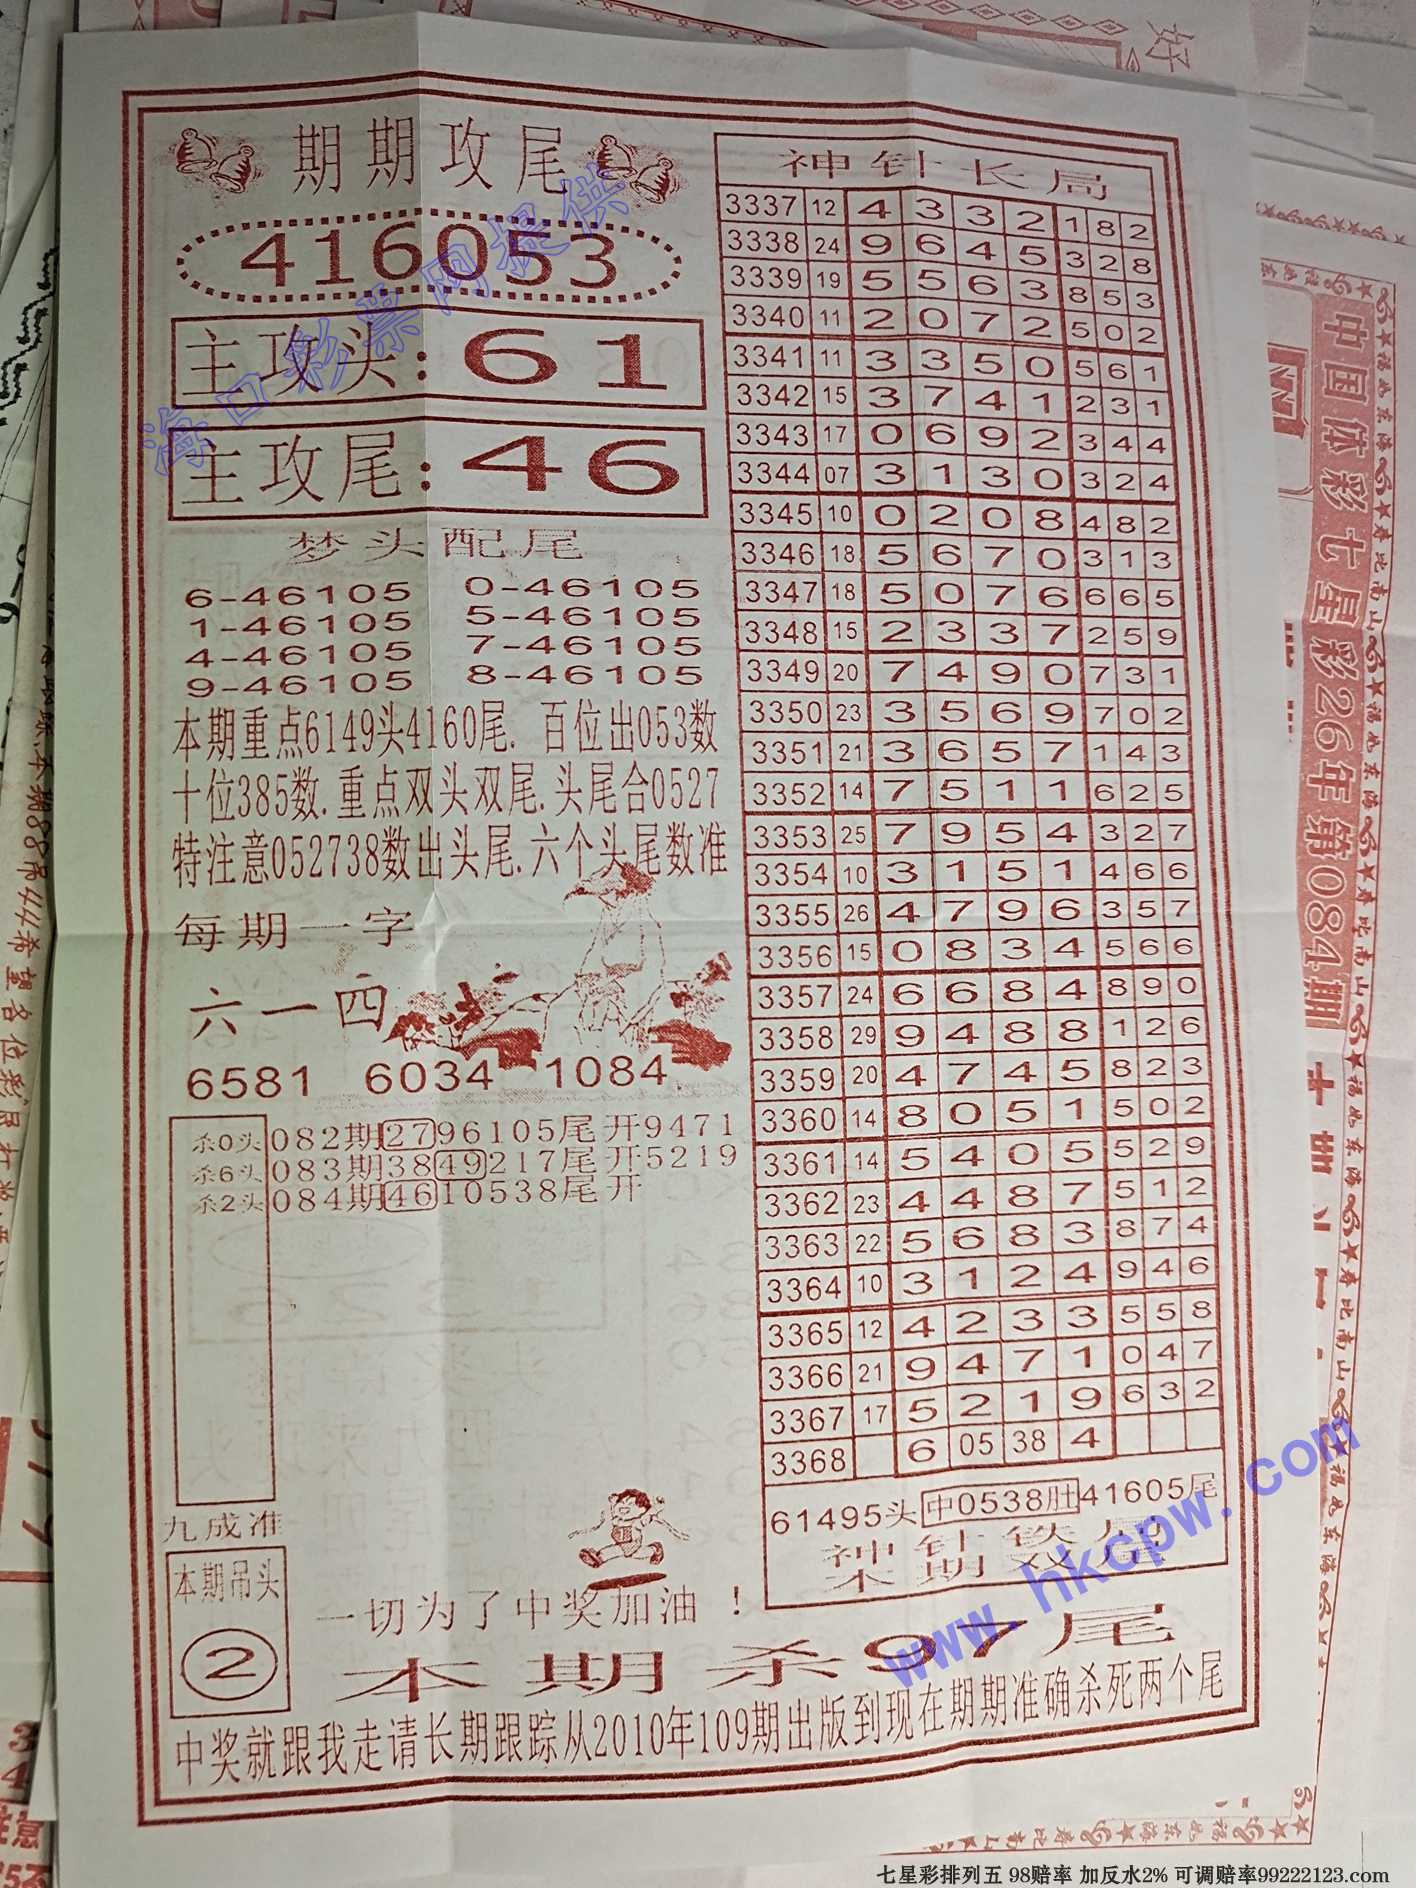 期期攻尾
416053
主攻头:61
主攻尾:46
梦头配尾
6-46105 0-46105
1-46105 5-46105
4-46105 7-46105
9-46105 8-46105
本期重点6149头4160尾. 百位出053数
十位385数.重点双头双尾.头尾合0527
特注意052738数出头尾.六个头尾数准
每期一字
六一四
6581 6034 1084
杀0头 082期2796105尾开9471
杀6头 083期3849217尾开5219
杀2头 084期4610538尾开
九成准
本期吊头
2
一切为了中奖加油！
本期杀97尾
中奖就跟我走请长期跟踪从2010年109期出版到现在期期准确杀死两个尾
神针长局
3337 12 4 3 3 2 1 8 2
3338 24 9 6 4 5 3 2 8
3339 19 5 5 6 3 8 5 3
3340 11 2 0 7 2 5 0 2
3341 11 3 3 5 0 5 6 1
3342 15 3 7 4 1 2 3 1
3343 17 0 6 9 2 3 4 4
3344 07 3 1 3 0 3 2 4
3345 10 0 2 0 8 4 8 2
3346 18 5 6 7 0 3 1 3
3347 18 5 0 7 6 6 6 5
3348 15 2 3 3 7 2 5 9
3349 20 7 4 9 0 7 3 1
3350 23 3 5 6 9 7 0 2
3351 21 3 6 5 7 1 4 3
3352 14 7 5 1 1 6 2 5
3353 25 7 9 5 4 3 2 7
3354 10 3 1 5 1 4 6 6
3355 26 4 7 9 6 3 5 7
3356 15 0 8 3 4 5 6 6
3357 24 6 6 8 4 8 9 0
3358 29 9 4 8 8 1 2 6
3359 20 4 7 4 5 8 2 3
3360 14 8 0 5 1 5 0 2
3361 14 5 4 0 5 5 2 9
3362 23 4 4 8 7 5 1 2
3363 22 5 6 8 3 8 7 4
3364 10 3 1 2 4 9 4 6
3365 12 4 2 3 3 5 5 8
3366 21 9 4 7 1 0 4 7
3367 17 5 2 1 9 6 3 2
3368 6 05 38 4
61495头中0538肚41605尾
神针铁局
本期双尾
海口彩票网提供
www.hkcpw.com
中国体彩七星彩26年第084期
好
七星彩排列五 98赔率 加反水2% 可调赔率99222123.com